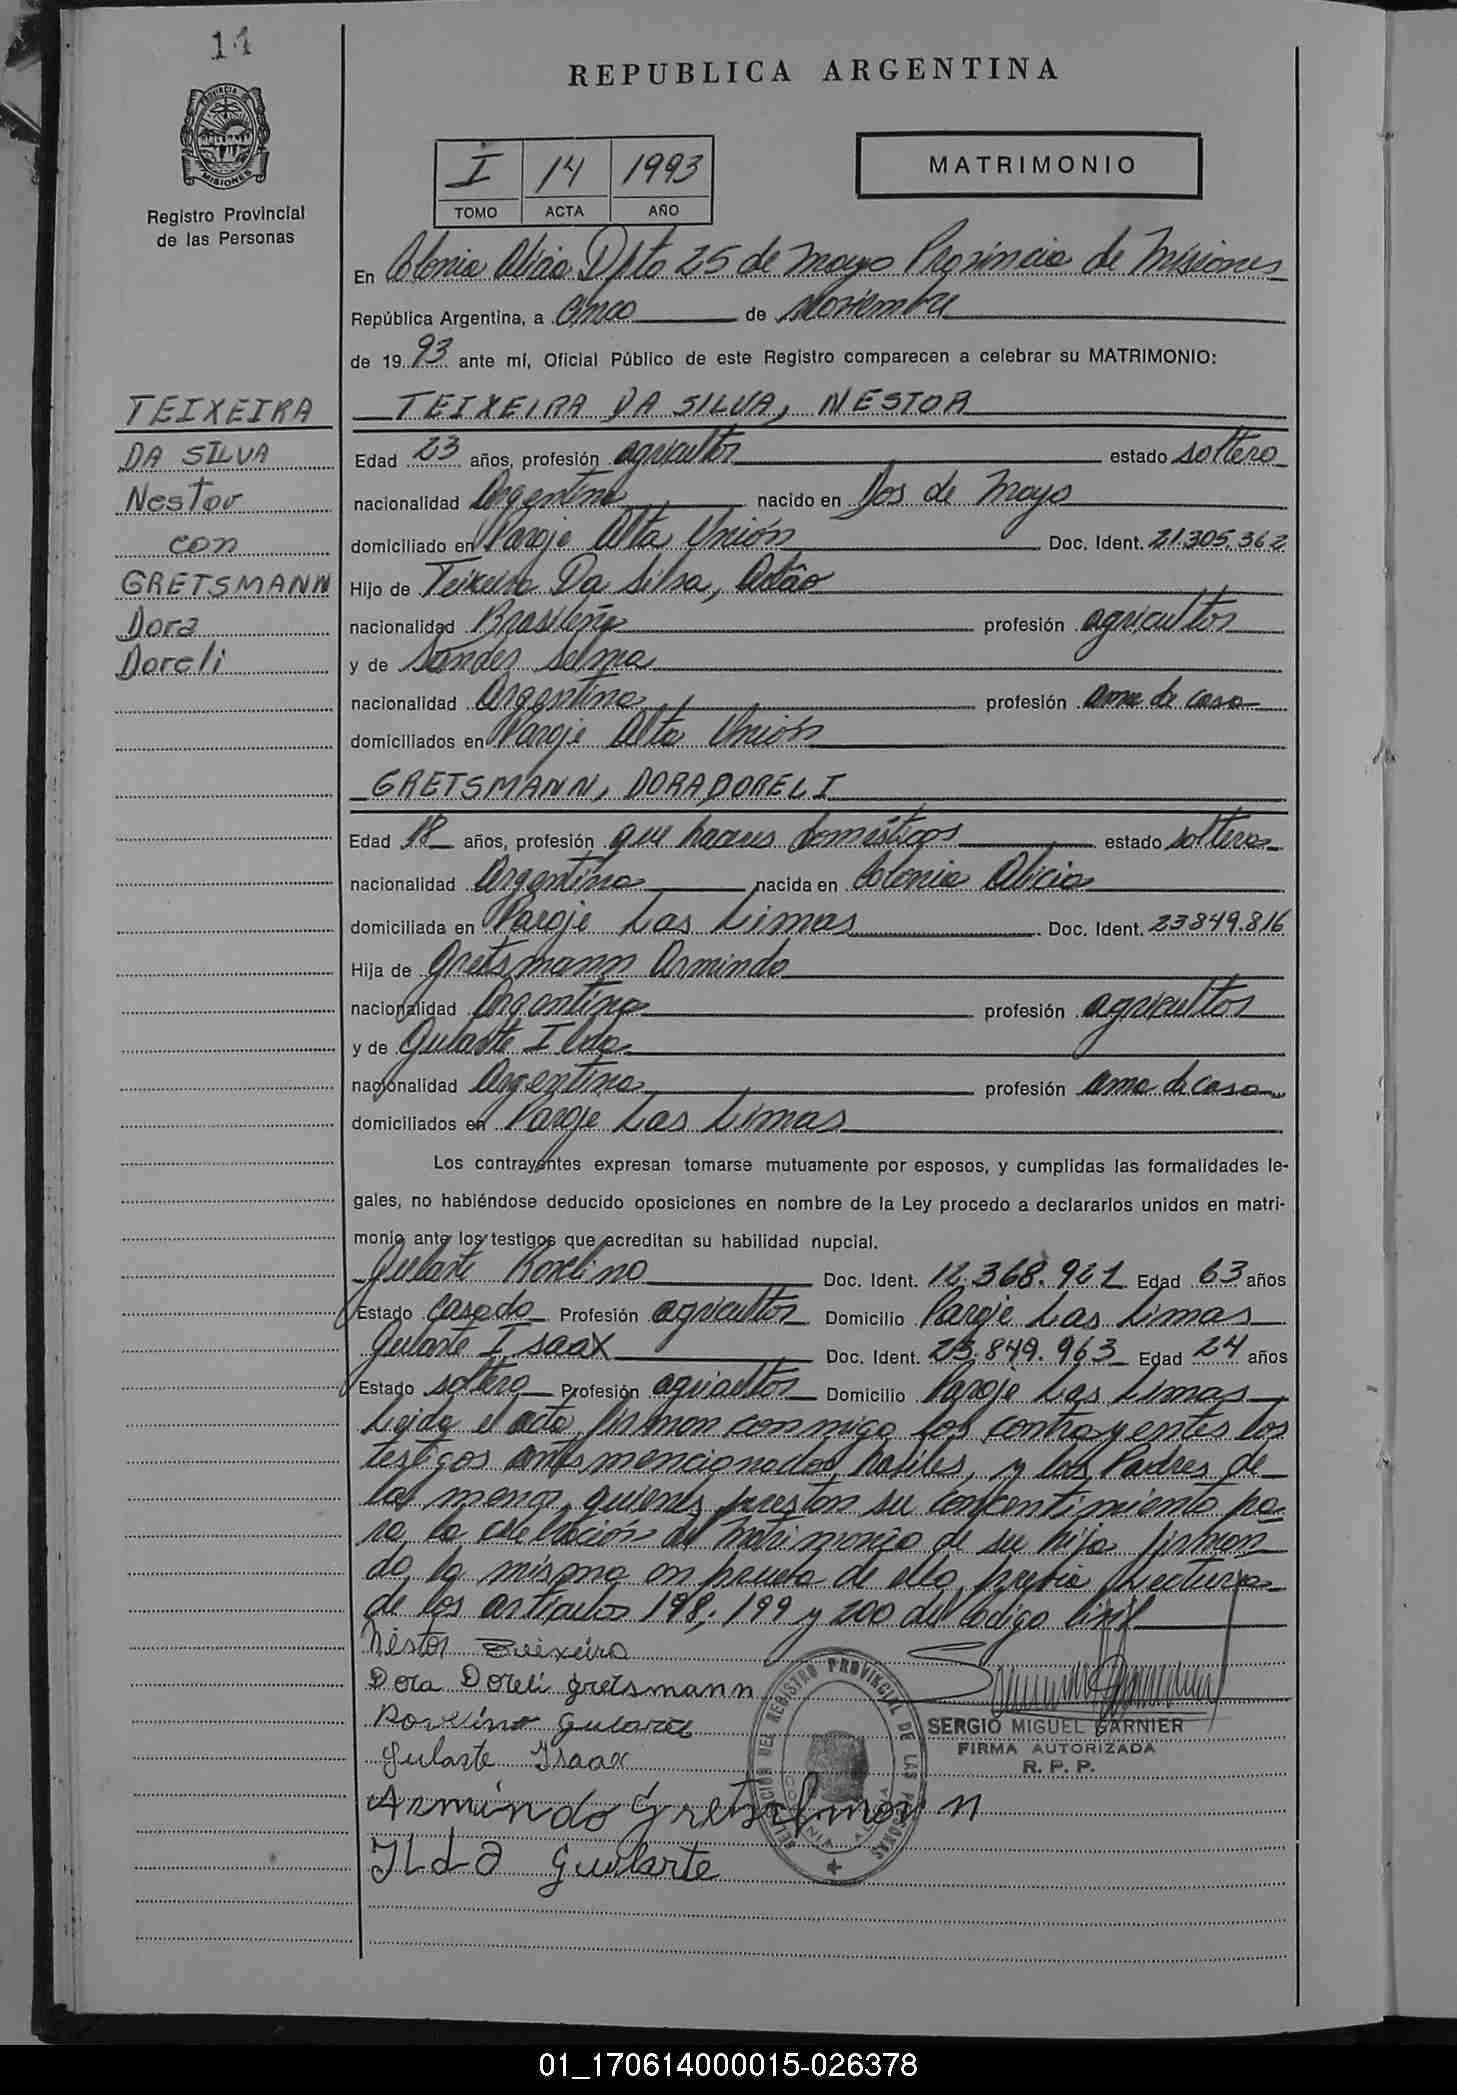 14
REPUBLICA ARGENTINA
PROVINCIA
MISIONES
Registro Provincial
de las Personas
I 14 1993
TOMO ACTA AÑO
MATRIMONIO
En Colonia Alicia Dpto 25 de Mayo Provincia de Misiones
República Argentina, a Cinco de Noviembre
de 19 93 ante mí, Oficial Público de este Registro comparecen a celebrar su MATRIMONIO:
TEIXEIRA
DA SILVA
Nestor
con
GRETSMANN
Dora
Doreli
TEIXEIRA DA SILVA, NESTOR
Edad 23 años, profesión agricultor estado soltero
nacionalidad Argentina nacido en Dos de Mayo
domiciliado en Paraje Alta Unión Doc. Ident. 21.305.362
Hijo de Teixeira Da Silva, Adão
nacionalidad Brasileña profesión agricultor
y de Sander Selma
nacionalidad Argentina profesión ama de casa
domiciliados en Paraje Alta Unión
GRETSMANN, DORA DORELI
Edad 18 años, profesión que haceres domésticos estado soltera
nacionalidad Argentina nacida en Colonia Alicia
domiciliada en Paraje Las Limas Doc. Ident. 23849.816
Hija de Gretsmann Armindo
nacionalidad Argentina profesión agricultor
y de Gularte Ilda
nacionalidad Argentina profesión ama de casa
domiciliados en Paraje Las Limas
Los contrayentes expresan tomarse mutuamente por esposos, y cumplidas las formalidades le-
gales, no habiéndose deducido oposiciones en nombre de la Ley procedo a declararlos unidos en matri-
monio ante los testigos que acreditan su habilidad nupcial.
Gularte Rovelino Doc. Ident. 12.368.921 Edad 63 años
Estado casado Profesión agricultor Domicilio Paraje Las Limas
Gularte Isaax Doc. Ident. 23.849.963 Edad 24 años
Estado soltero Profesión agricultor Domicilio Paraje Las Limas
Leida el acta, firman conmigo los contrayentes los
testigos antes mencionados, habiles, y los Padres de
la menor, quienes prestan su concentimiento pa-
ra la celebración del Matrimonio de su hija firman-
do la misma en prueba de ello, previa Lectura
de los articulos 198, 199 y 200 del Codigo Civil
Néstor Teixeira
Dora Doreli gretsmann
Rovelino Gularte
Gularte Isaax
Armindo Gretsmann
ILdA Gularte
DELEGACION DEL REGISTRO PROVINCIAL DE LAS PERSONAS
COLONIA ALICIA
SERGIO MIGUEL GARNIER
FIRMA AUTORIZADA
R. P. P.
01_170614000015-026378